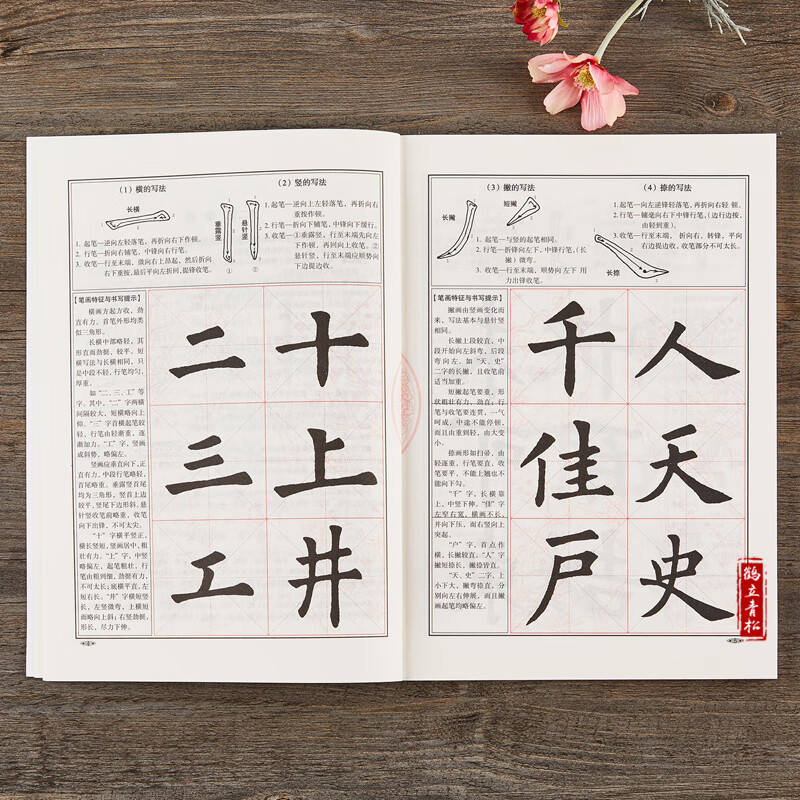 (1) 横的写法
长横
1. 起笔—逆向左轻落笔，再折向右下作顿。
2. 行笔—折向右铺笔，中锋向右行笔。
3. 收笔—行至末端，微向右上昂起，然后折向
右下重按，最后平向左折回，提锋收笔。
(2) 竖的写法
垂露竖
悬针竖
①
②
1. 起笔—逆向上左轻落笔，再折向右
重按作顿。
2. 行笔—折向下铺笔，中锋向下缓行。
3. 收笔—①垂露竖，行至末端先向左
下作顿，再回向上收笔。②
悬针竖，行至末端应顺势向
下边提边收。
【笔画特征与书写提示】
横画方起方收，劲
直有力。首笔外形均类
似三角形。
长横中部略轻，其
形直而劲挺，较平。短
横写法与长横相同，只
是中段不轻，行笔均匀，
厚重。
如“二、三、工”等
字。其中，“二”字两横
间隔较大，短横略向上
仰。“三”字首横起笔较
轻，行笔由轻渐重，逐
渐加力。“工”字，竖画
成斜势，略偏左。
竖画应垂直向下，正
直有力，中段行笔略轻，
首尾略重。垂露竖首尾
均为三角形，竖首上边
较平，竖尾下边形斜。悬
针竖收笔前略重，收笔
向下出锋，不可太尖。
“十”字横平竖正，
横长竖短，竖画居中，粗
壮有力。“上”字，中竖
略偏左，起笔粗壮，行
笔由粗到细，劲挺有力，
不可太长；底横平直，左
短右长。“井”字横短竖
长，左竖微弯，上横短
而略向上斜；右竖劲挺，
形长，尽力下伸。
二 十
三 上
工 井
4
(3) 撇的写法
长撇
短撇
1. 起笔—与竖的起笔相同。
2. 行笔—折锋向左下，中锋行笔，(长
撇）微弯。
3. 收笔—行至末端，顺势向左下 用
力出锋收笔。
(4) 捺的写法
1. 起笔—向左逆锋轻落笔，再折向右轻 顿。
2. 行笔—铺毫向右下中锋行笔，(边行边按，
由轻到重)。
3. 收笔—行至末端， 折向右，转锋，平向
右边提边收，收笔部分不可太长。
长捺
【笔画特征与书写提示】
撇画由竖画变化而
来，写法基本与悬针竖
相同。
长撇上段较直，中
段开始向左斜弯，后段
弯向左，如“天、史”
二字的长撇，且收笔前
适当加重。
短撇起笔要重，形
状粗壮有力，劲直；行笔
与收笔要连贯，一气
呵成，中途不能停顿，
而且由重到轻，由大变
小。
捺画形如扫帚，由
轻逐重，行笔要直，收
笔要平，不能上翘也不
能向下勾。
“千”字，长横靠
上，中竖下伸。“佳”字
左窄右宽，横画不长，
并向下压，而右竖向上
突起。
“户”字，首点作
横，长撇较直。“人”字
撇短捺长，撇捺皆直。
“天、史”二字，上
小下大，撇弯捺直，分
别向左右伸展，而且撇
画起笔均略偏左。
千 人
佳 天
户 史
5
鹤立青松